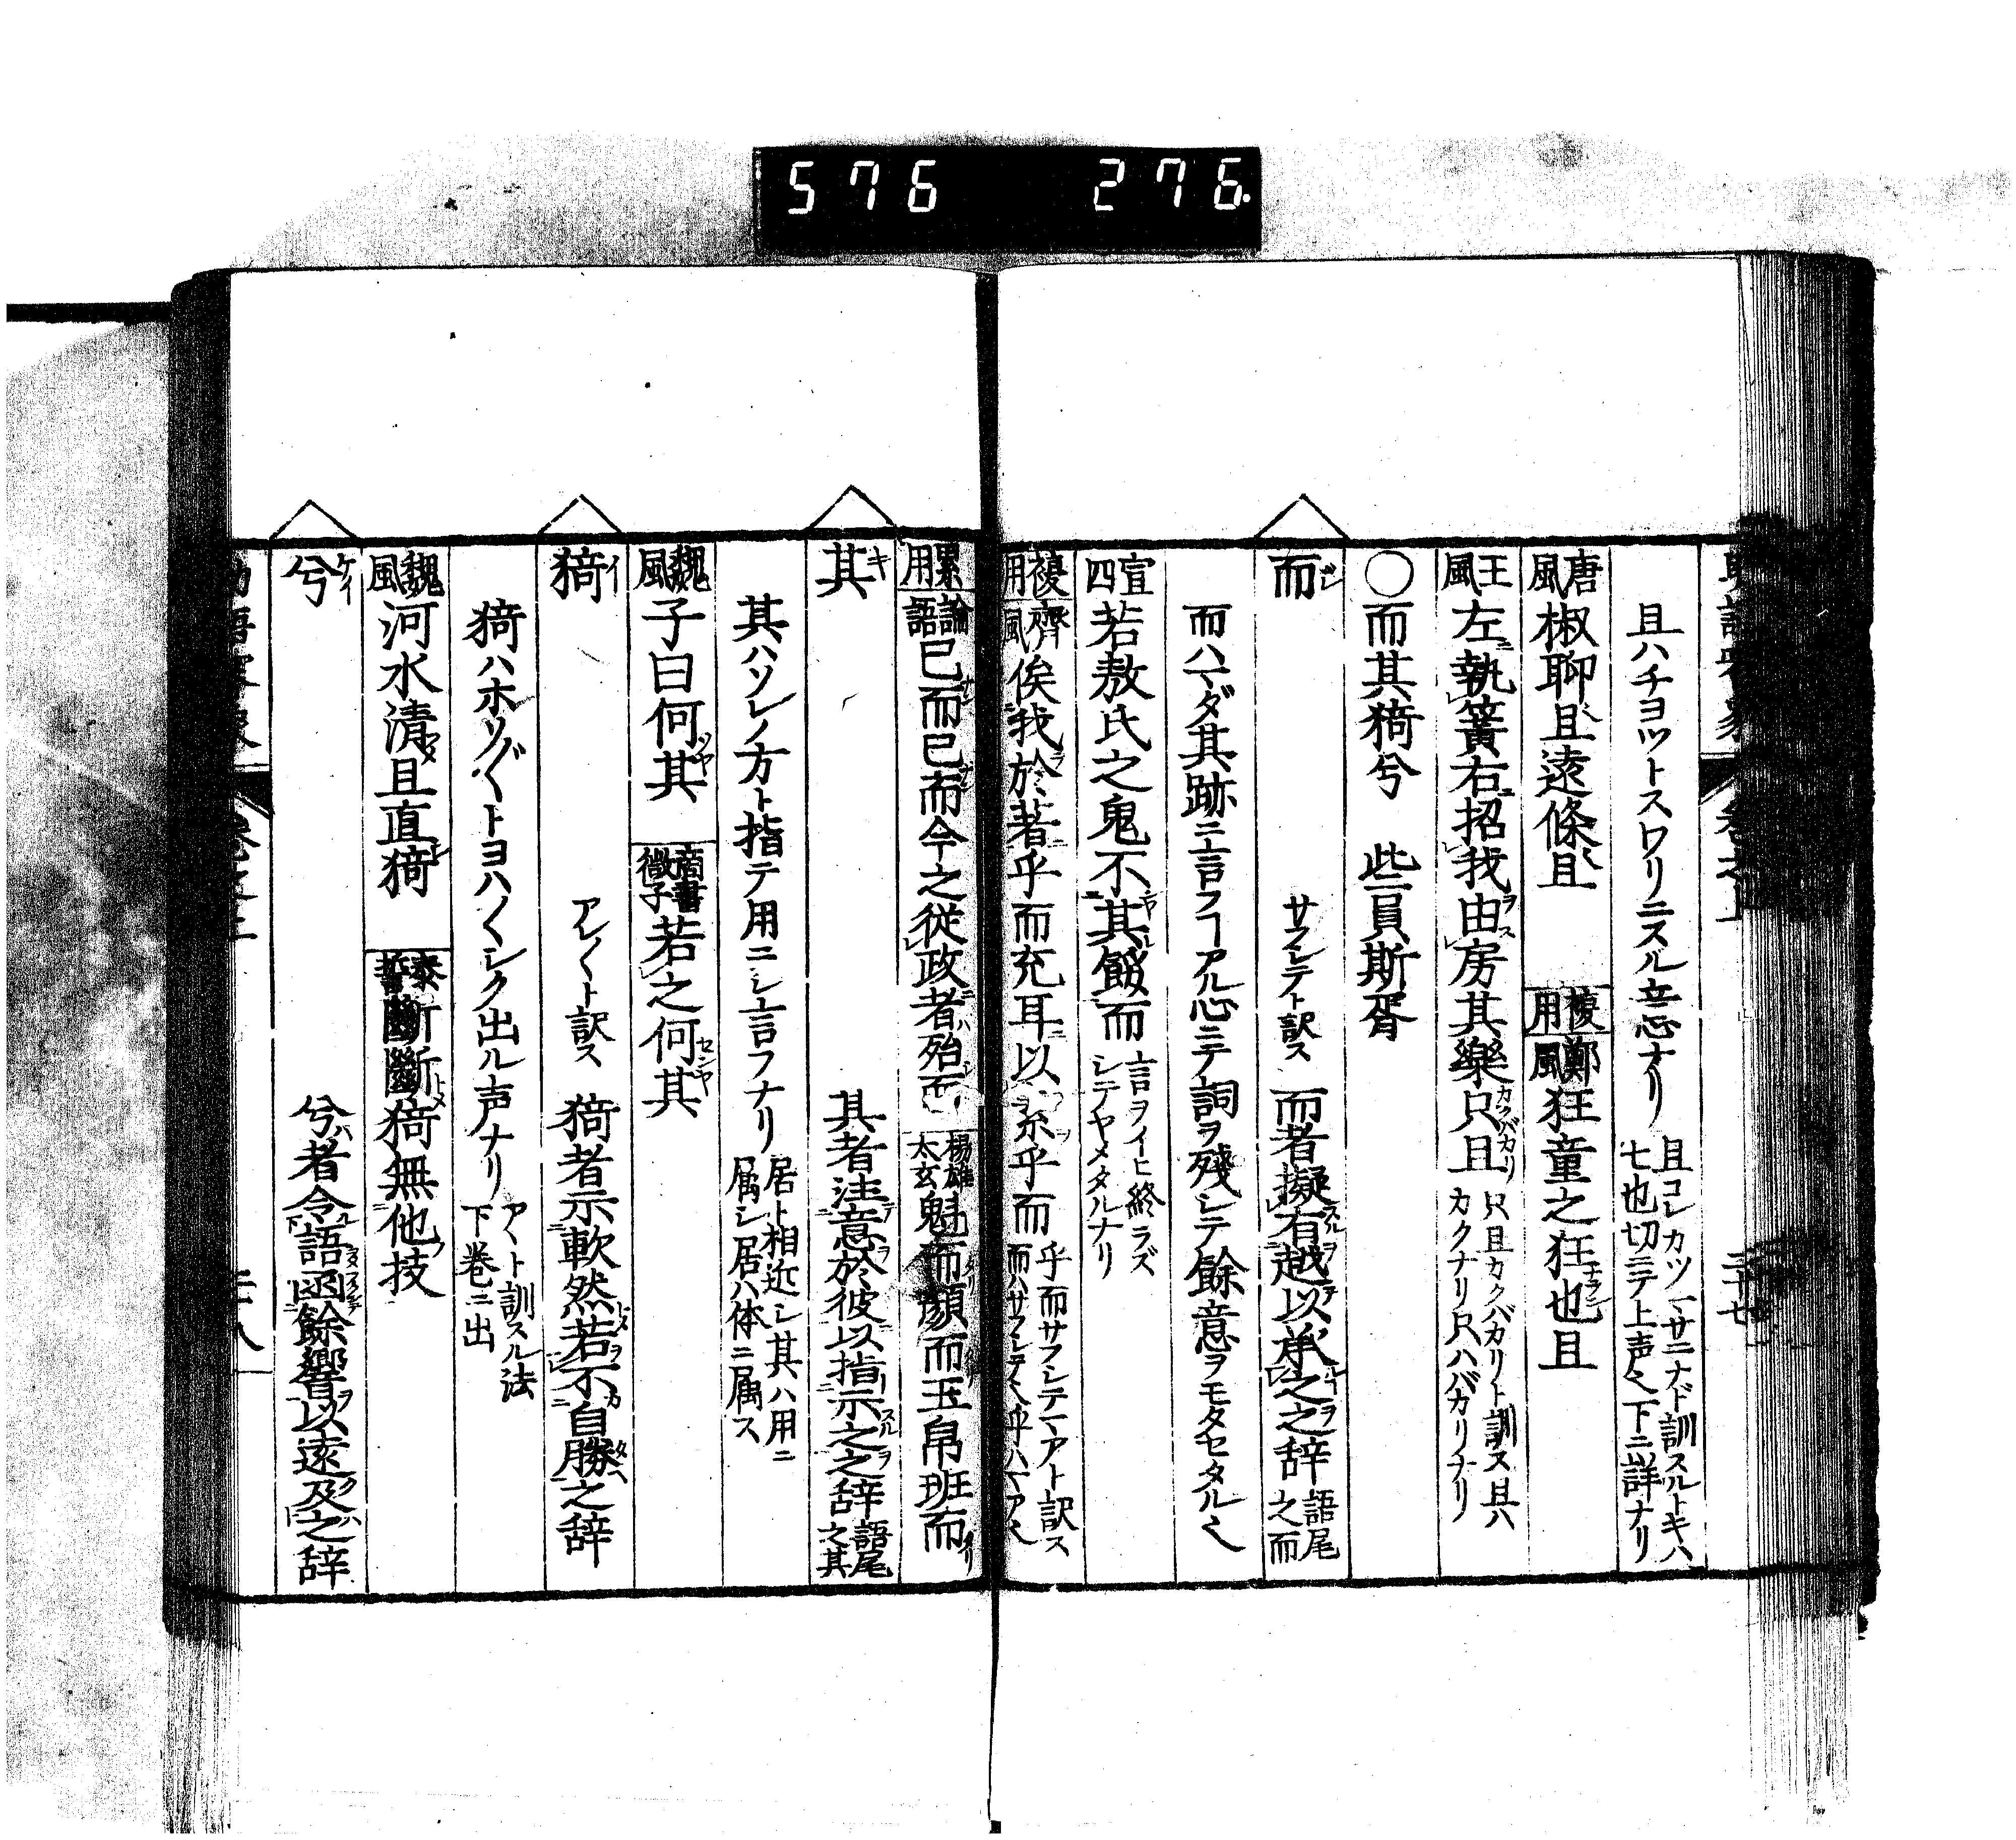 576 276.
且ハチヨツトスワリニスル意ナリ 且コレカツ
七也切ニテ上声 下ニ詳ナリ
唐風 椒聊且遠條且 複用 鄭風 狂童之狂也且
王風 左執簧右招我由房其樂只且 只且カクバカリト訓ス且ハ
カクナリ只ハバカリナリ
〇而其猗兮 些員斯胥
而 サフシテト訳ス 而者擬有越以承之之辞 語尾之而
而ハマダ其跡ニ言フヿアル心ニテ詞ヲ殘シテ餘意ヲモタセタル
宣四 若敖氏之鬼不其餒而 言ヲイヒ終ラズ
シテヤメタルナリ
複用 齊風 俟我於著乎而充耳以素乎而 乎而サフシテマアト訳ス
累用 論語 已而已而今之従政者殆而 楊雄太玄 魁而顔而玉帛班而
其 キ 其者注意於彼以指示之之辞 語尾之其
其ハソレノ方ト指テ用ニシ言フナリ 居ト相近シ其ハ用ニ
属シ居ハ体ニ属ス
魏風 子曰何其 商書微子 若之何其
猗 イ アヽト訳ス 猗者示軟然若不自勝之辞
猗ハホソ〲トヨハ〱シク出ル声ナリ アヽト訓スル法
下巻ニ出
魏風 河水清且直猗 秦誓 斷斷猗無他技
兮 ケイ 兮者令語函餘響以遠及之辞